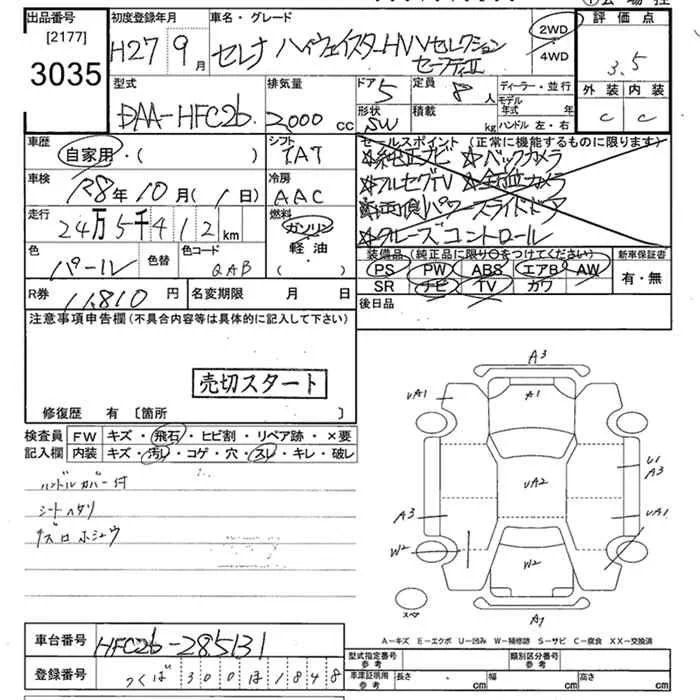 出品番号
[2177]
3035
初度登録年月
H27 9月
車名・グレード
セレナ ハイウェイスターHV Vセレクション
セーフティⅡ
2WD
4WD
評価点
3.5
外装 内装
C C
型式
DAA-HFC26
排気量
2000 cc
ドア
5
形状
SW
定員
8人
積載
kg
ディーラー・並行
モデル年式 年
ハンドル 左・右
車歴
自家用・( )
シフト
車検
R8年10月(1日)
冷房
AAC
走行
24万5千412km
燃料
ガソリン
軽油
( ・ )
色
パール
色替
色コード
QAB
セールスポイント (正常に機能するものに限ります)
☆純正ナビ ☆バックカメラ
☆フルセグTV ☆全周カメラ
☆両側パワースライドドア
☆クルーズコントロール
装備品 (純正品に限り○をつけてください)
PS PW ABS エアB AW
SR ナビ TV カワ
新車保証書
有・無
R券
11,810円
名変期限 月 日
後日品
注意事項申告欄(不具合内容等は具体的に記入して下さい)
売切スタート
修復歴 有 〔箇所 〕
検査員記入欄
FW キズ・飛石・ヒビ割・リペア跡・×要
内装 キズ・汚レ・コゲ・穴・スレ・キレ・破レ
ハンドルカバー付
シートヘタリ
下スロホシュウ
A3
UA1 A1
UA2
U1
A3
A3 UA1
W2 W2
スペア
A1
A-キズ E-エクボ U-凹み W-補修跡 S-サビ C-腐食 XX-交換済
車台番号
HFC26-285131
登録番号
つくば300は1848
型式指定番号
参考
類別区分番号
参考
車庫証明用
参考
長さ cm 幅 cm 高さ cm